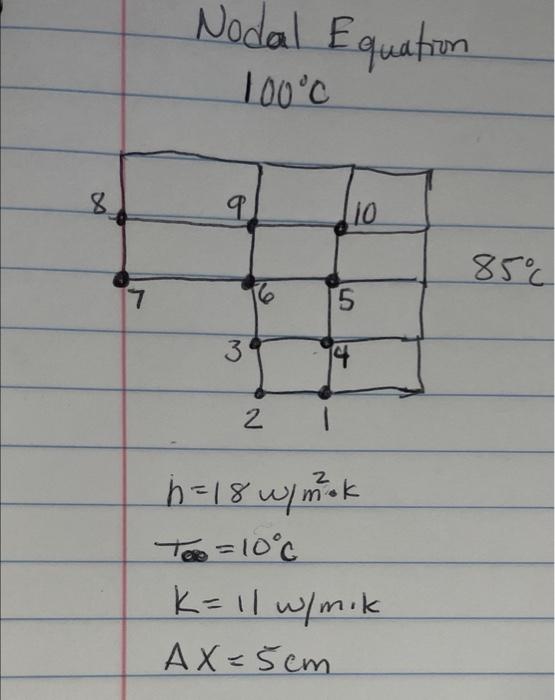 Nodal Equation
100°C
8 9 10
85°C
7 6 5
3 4
2 1
h=18 w/m²·k
T∞=10°C
K=11 w/m·k
ΔX=5cm